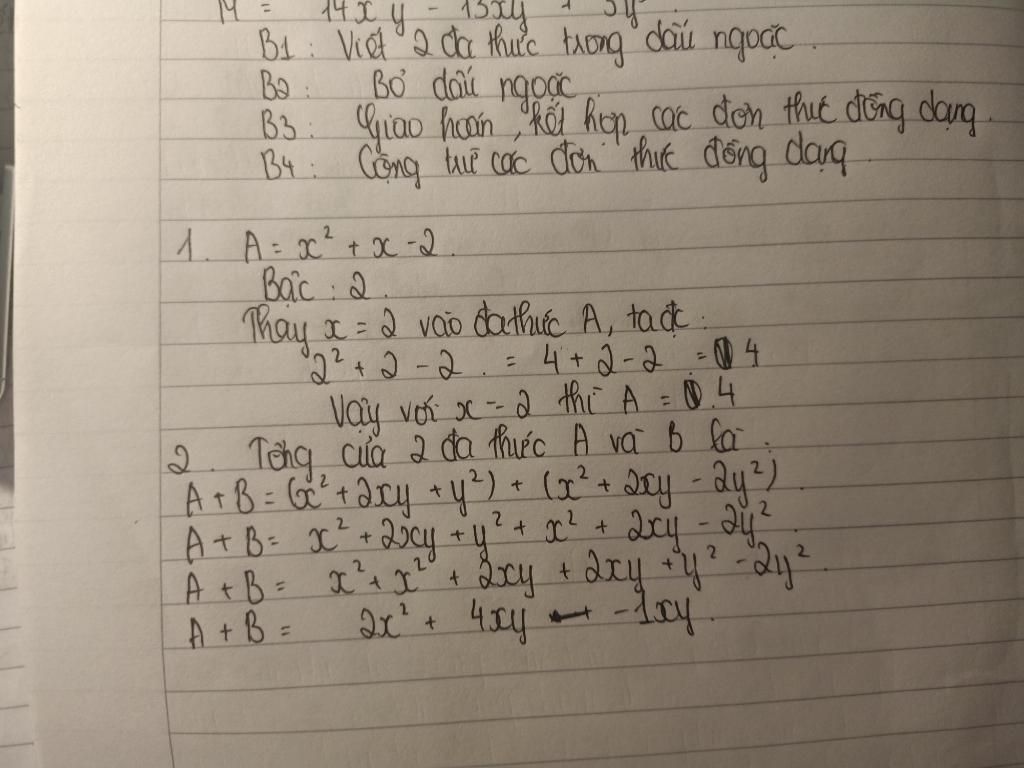 M = 14xy - 13xy + 5y
B1 : Viết 2 đa thức trong dấu ngoặc.
B2 : Bỏ dấu ngoặc
B3 : Giao hoán, kết hợp các đơn thức đồng dạng.
B4 : Cộng trừ các đơn thức đồng dạng.
1. A = x² + x - 2.
Bậc : 2.
Thay x = 2 vào đa thức A, ta đc :
2² + 2 - 2 = 4 + 2 - 2 = 4
Vậy với x = 2 thì A = 4
2. Tổng của 2 đa thức A và B là :
A + B = (x² + 2xy + y²) + (x² + 2xy - 2y²).
A + B = x² + 2xy + y² + x² + 2xy - 2y².
A + B = x² + x² + 2xy + 2xy + y² - 2y².
A + B = 2x² + 4xy - 1xy.